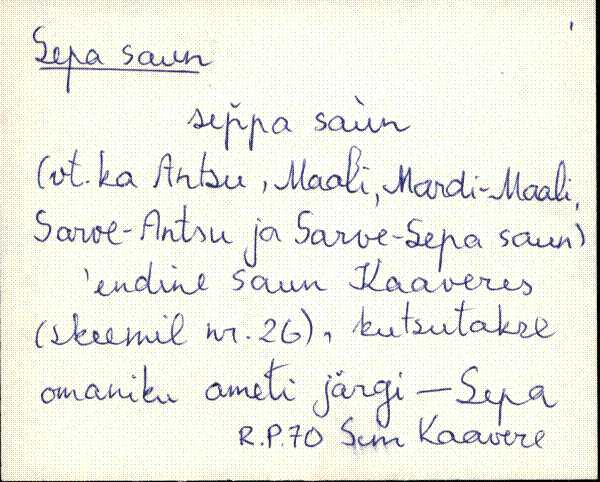 Sepa saun
sep̆pa saùn
(vt. ka Antsu, Maali, Mardi-Maali,
Sarve-Antsu ja Sarve-Sepa saun)
'endine saun Kaaveres
(skeemil nr. 26), kutsutakse
omaniku ameti järgi — Sepa
R.P.70 Sim Kaavere